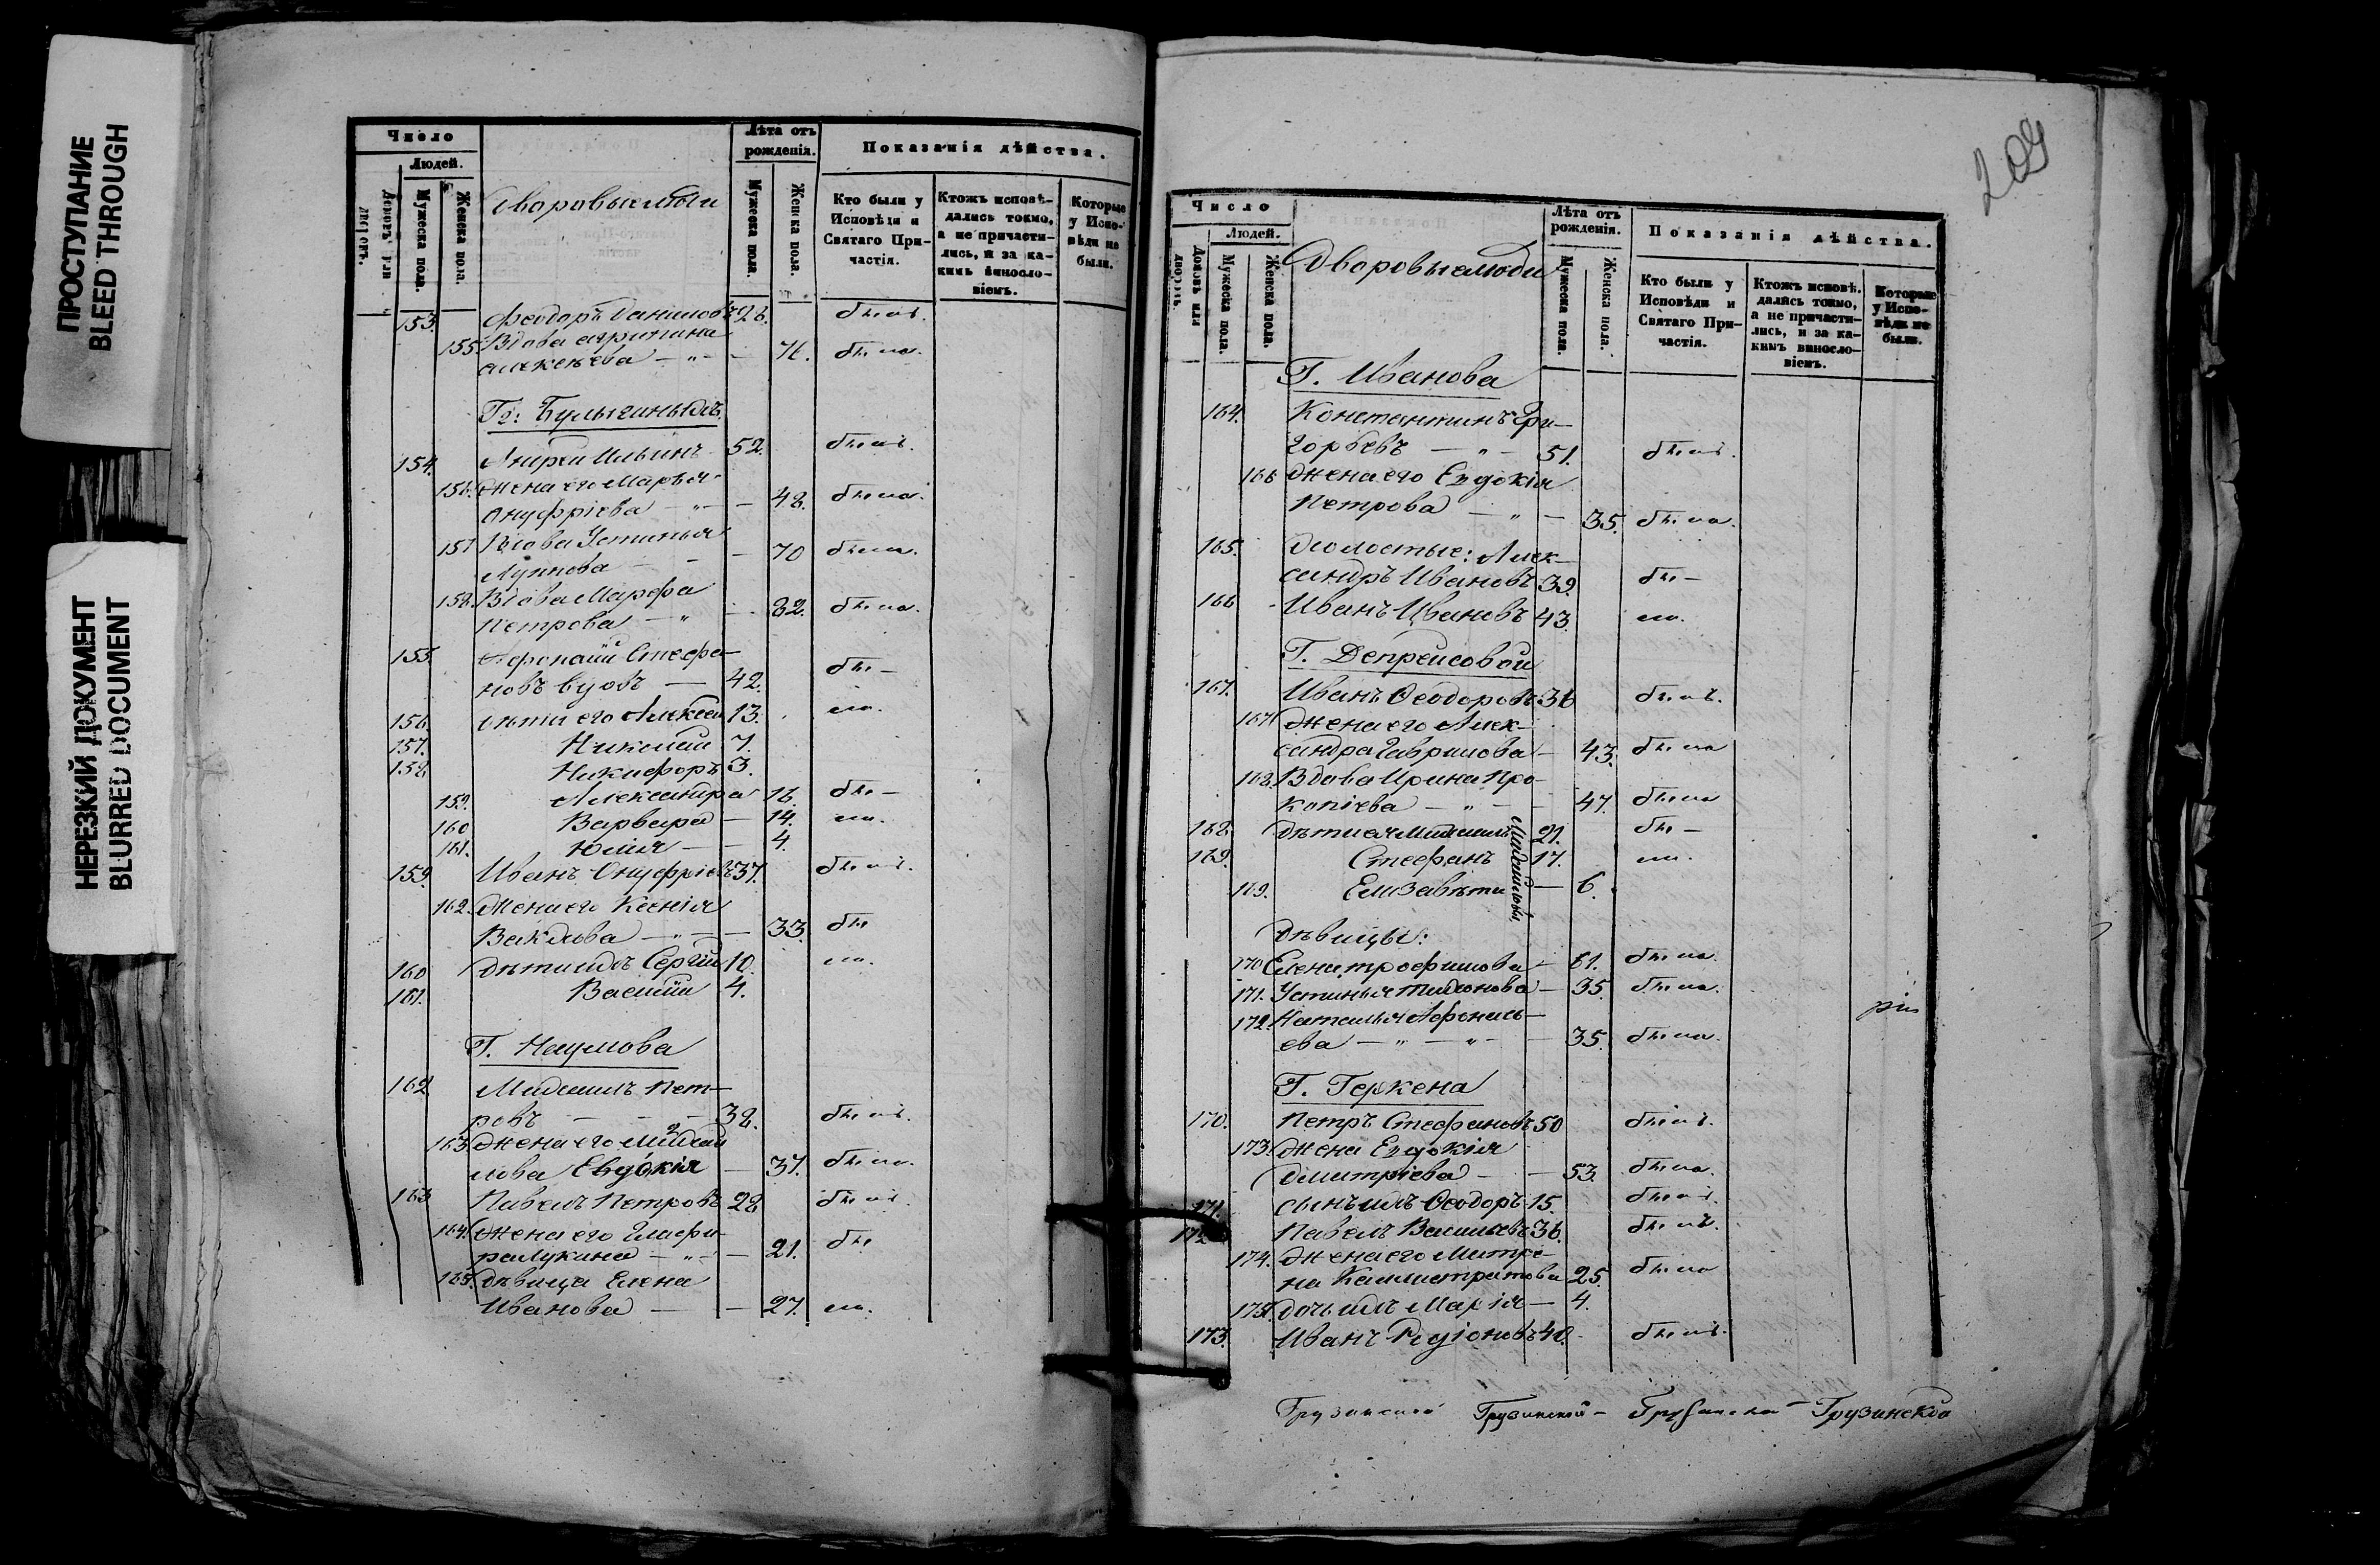 ПРОСТУПАНИЕ
BLEED THROUGH
НЕРЕЗКИЙ ДОКУМЕНТ
BLURRED DOCUMENT
Число
Людей.
Мужеска пола.
Женска пола.
Дворовые люди
Лѣта отъ рожденія.
Мужеска пола.
Женска пола.
Показанія дѣйства.
Кто были у Исповѣди и Святаго Причастія.
Ктожъ исповѣдались токмо, а не причастились, и за какимъ винословіемъ.
Которые у Исповѣди не были.
153. Феодоръ Даниловъ 28. былъ.
155. Вдова Агрипина
Алексѣева — „ — — 76. была.
Гг: Булыгиныхъ
154. Андрей Ильинъ 52. былъ.
156. Жена его Марья
Онуфріева — „ — — 48. была.
157 Вдова Устинья
Луппова — — 70 была.
158. Вдова Марфа
Петрова — „ — 32. была.
155. Афонасій Стефа-
новъ вдовъ — 42. бы —
156. дѣти его Алексѣй 13. ли.
157. Николай 7.
158. Никифоръ 3.
159. Александра 16. бы —
160 Варвара — 14. ли.
161. Юлія — — 4.
159. Иванъ Онуфріевъ 37. былъ.
162. Жена его Ксенія
— „ — — 33. бы
160 дѣти ихъ Сергій 10. ли.
161. Василій 4.
Г. Наумова
162. Михаилъ Пет-
ровъ — — — 38. былъ.
163. Жена его Михай
лова Евдокія — 37. была.
163 Павелъ Петровъ 28 былъ.
164. Жена его Глафи-
ра Лукина — „ — — 21. бы
165. дѣвица Елена
Иванова — — 27. ли.
209
Число
Людей.
Домовъ или дворовъ.
Мужеска пола.
Женска пола.
Дворовые люди
Лѣта отъ рожденія.
Мужеска пола.
Женска пола.
Показанія дѣйства.
Кто были у Исповѣди и Святаго Причастія.
Ктожъ исповѣдались токмо, а не причастились, и за какимъ винословіемъ.
Которые у Исповѣди не были.
Г. Иванова
164. Константинъ Гри-
горьевъ — „ — 51. былъ.
166 Жена его Евдокія
Петрова — „ — 35. была.
165. Холостые: Алек-
сандръ Ивановъ 39. бы —
166 Иванъ Ивановъ 43. ли.
Г. Депрейсовой
167. Иванъ Ѳеодоровъ 36 былъ.
167 Жена его Алек-
сандра Гаврилова — 43. была
168. Вдова Ирина Про-
копіева — „ — — 47. была
168. дѣти ея Михаилъ 21. бы —
169. Стефанъ 17. ли.
169. Елизавета — 6.
Михайловы
Дѣвицы:
170 Елена Трофимова — 61. была.
171. Устинья Тихонова — 35. была.
172. Наталья Афонась-
ева — „ — „ — — 35. была.
Г. Геркена
170. Петръ Стефановъ 50 былъ.
173 Жена Евдокія
Димитріева — — 53. была.
171. сынъ ихъ Ѳеодоръ 15. былъ.
172 Павелъ Васильевъ 36. былъ.
174. Жена его Матре-
на Каллистратова 25. была
175. дочь ихъ Марія — 4.
173. Иванъ Родіоновъ 40. былъ.
Грузинской Грузинской — Грузинска — Грузинска